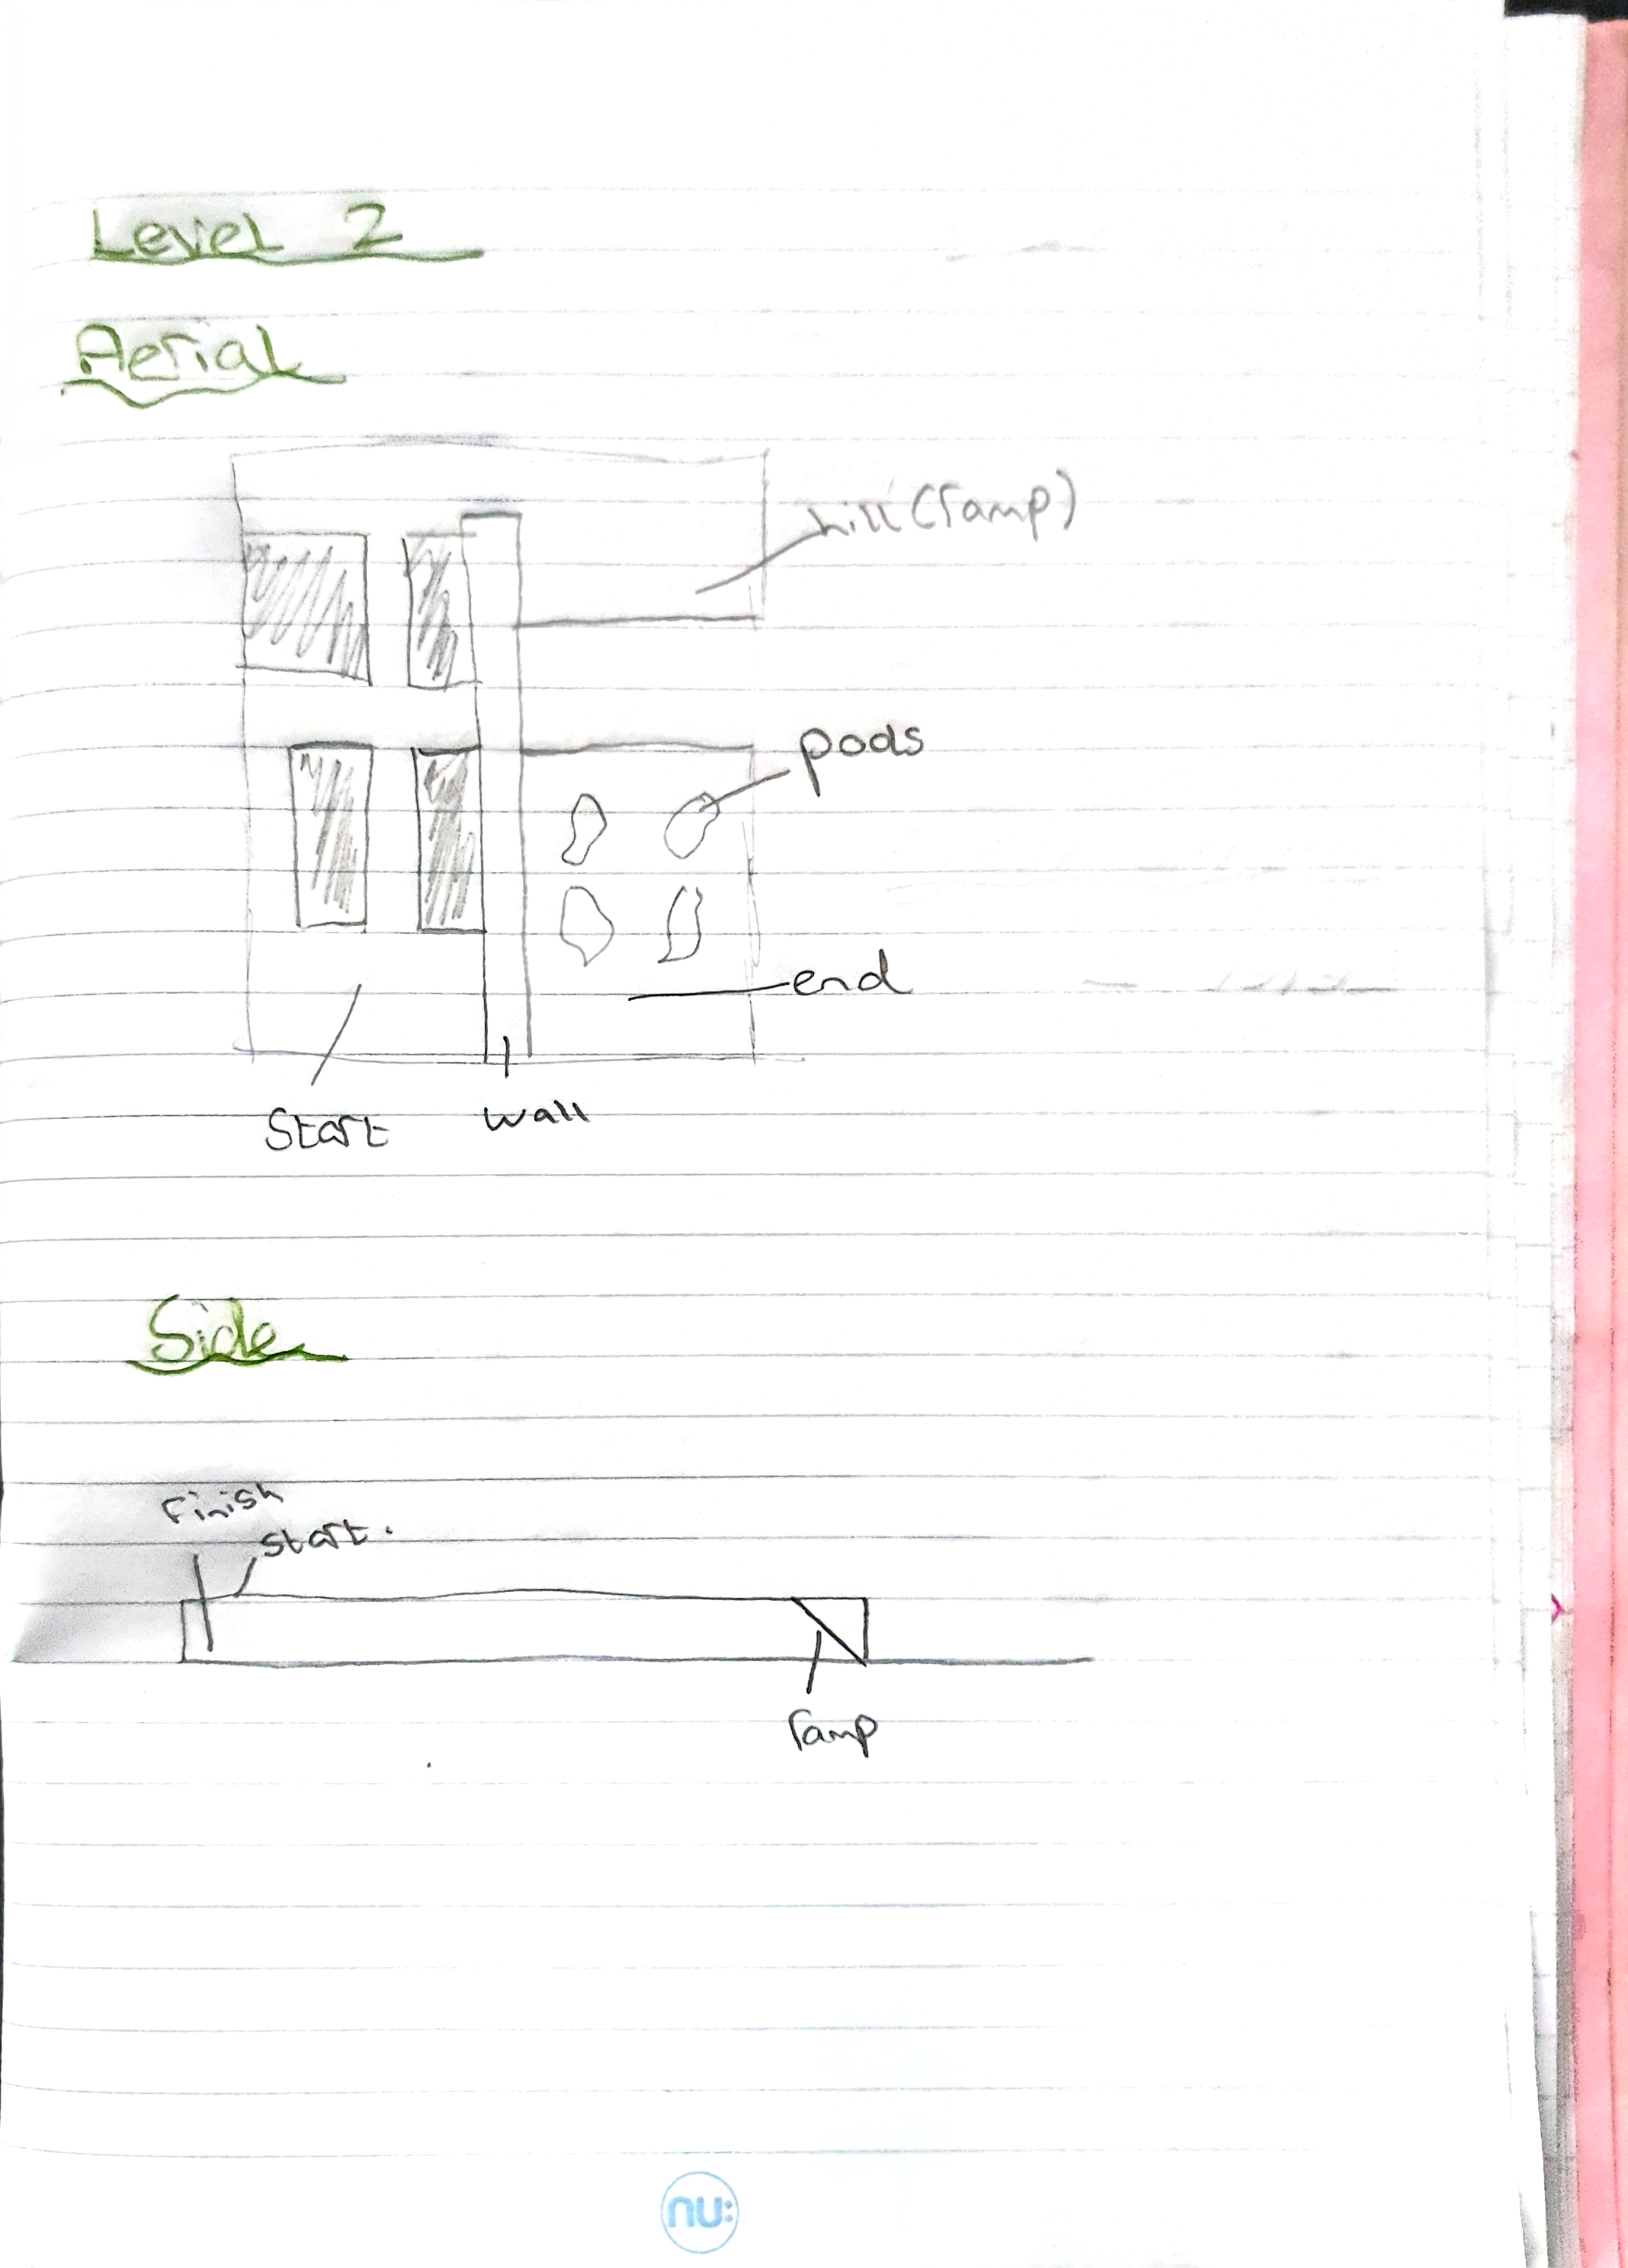 Level 2
Aerial
hill (ramp)
pods
end
Start
wall
Side
Finish
Start.
ramp
nu: